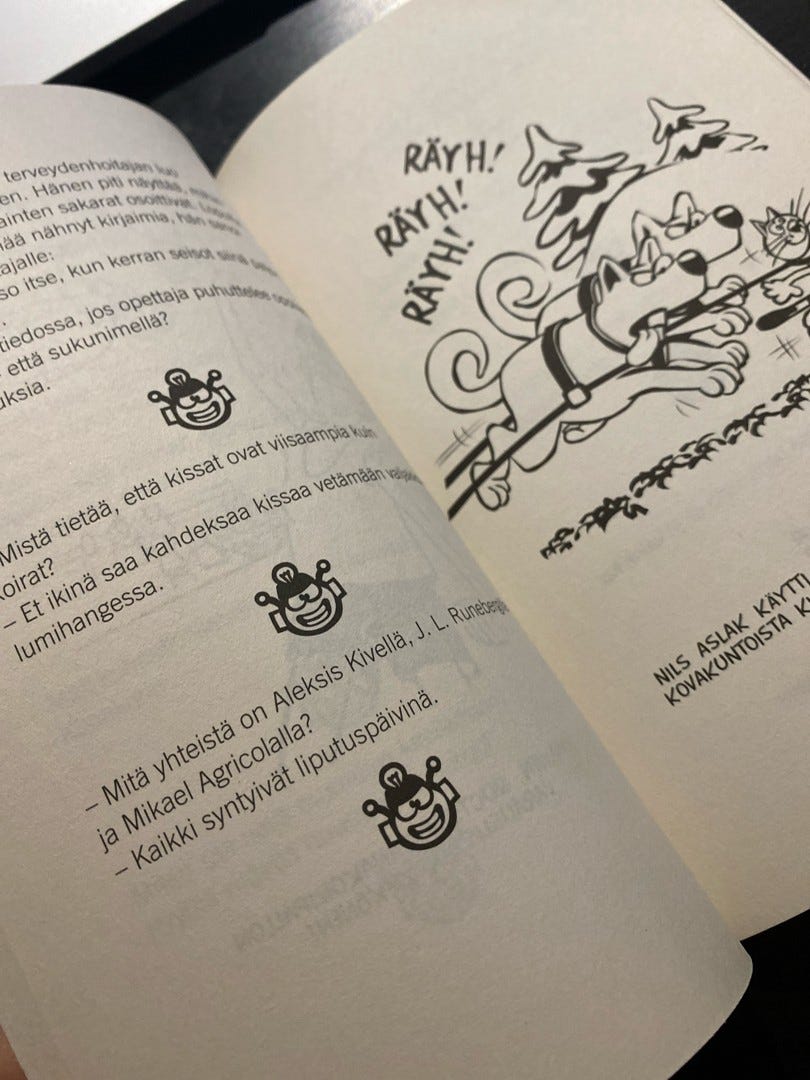 terveydenhoitajan luo
en. Hänen piti näyttää,
ainten sakarat osoittivat.
ää nähnyt kirjaimia, hän sanoi
ajalle:
so itse, kun kerran seisot siinä
tiedossa, jos opettaja puhuttelee
että sukunimellä?
uksia.
Mistä tietää, että kissat ovat viisaampia kuin
koirat?
– Et ikinä saa kahdeksaa kissaa vetämään
lumihangessa.
– Mitä yhteistä on Aleksis Kivellä, J. L.
ja Mikael Agricolalla?
– Kaikki syntyivät liputuspäivinä.
RÄYH!
RÄYH!
RÄYH!
NILS ASLAK KÄYTTI
KOVAKUNTOISTA